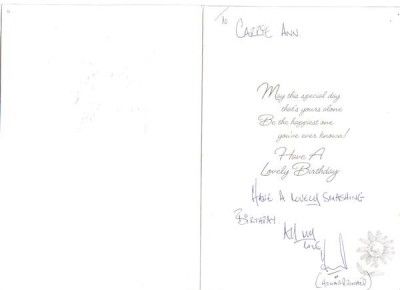 To
CARRIE ANN
May this special day
that's yours alone
Be the happiest one
you've ever known!
Have A
Lovely Birthday
HAVE A LOVELY SMASHING
BIRTHDAY
All my
LOVE